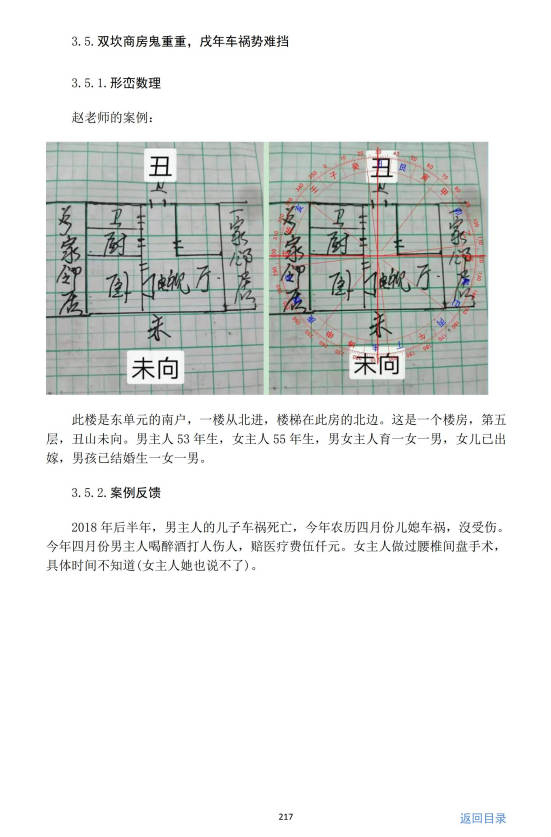 3.5.双坎商房鬼重重，戌年车祸势难挡
3.5.1.形峦数理
赵老师的案例：
丑
丑
卫
厨
卧
电视
厅
另家邻居
一家邻居
未
未向
丑
卫
厨
卧
电视
厅
另家邻居
一家邻居
未
未向
此楼是东单元的南户，一楼从北进，楼梯在此房的北边。这是一个楼房，第五
层，丑山未向。男主人 53 年生，女主人 55 年生，男女主人育一女一男，女儿已出
嫁，男孩已结婚生一女一男。
3.5.2.案例反馈
2018 年后半年，男主人的儿子车祸死亡，今年农历四月份儿媳车祸，沒受伤。
今年四月份男主人喝醉酒打人伤人，赔医疗费伍仟元。女主人做过腰椎间盘手术，
具体时间不知道(女主人她也说不了)。
217
返回目录